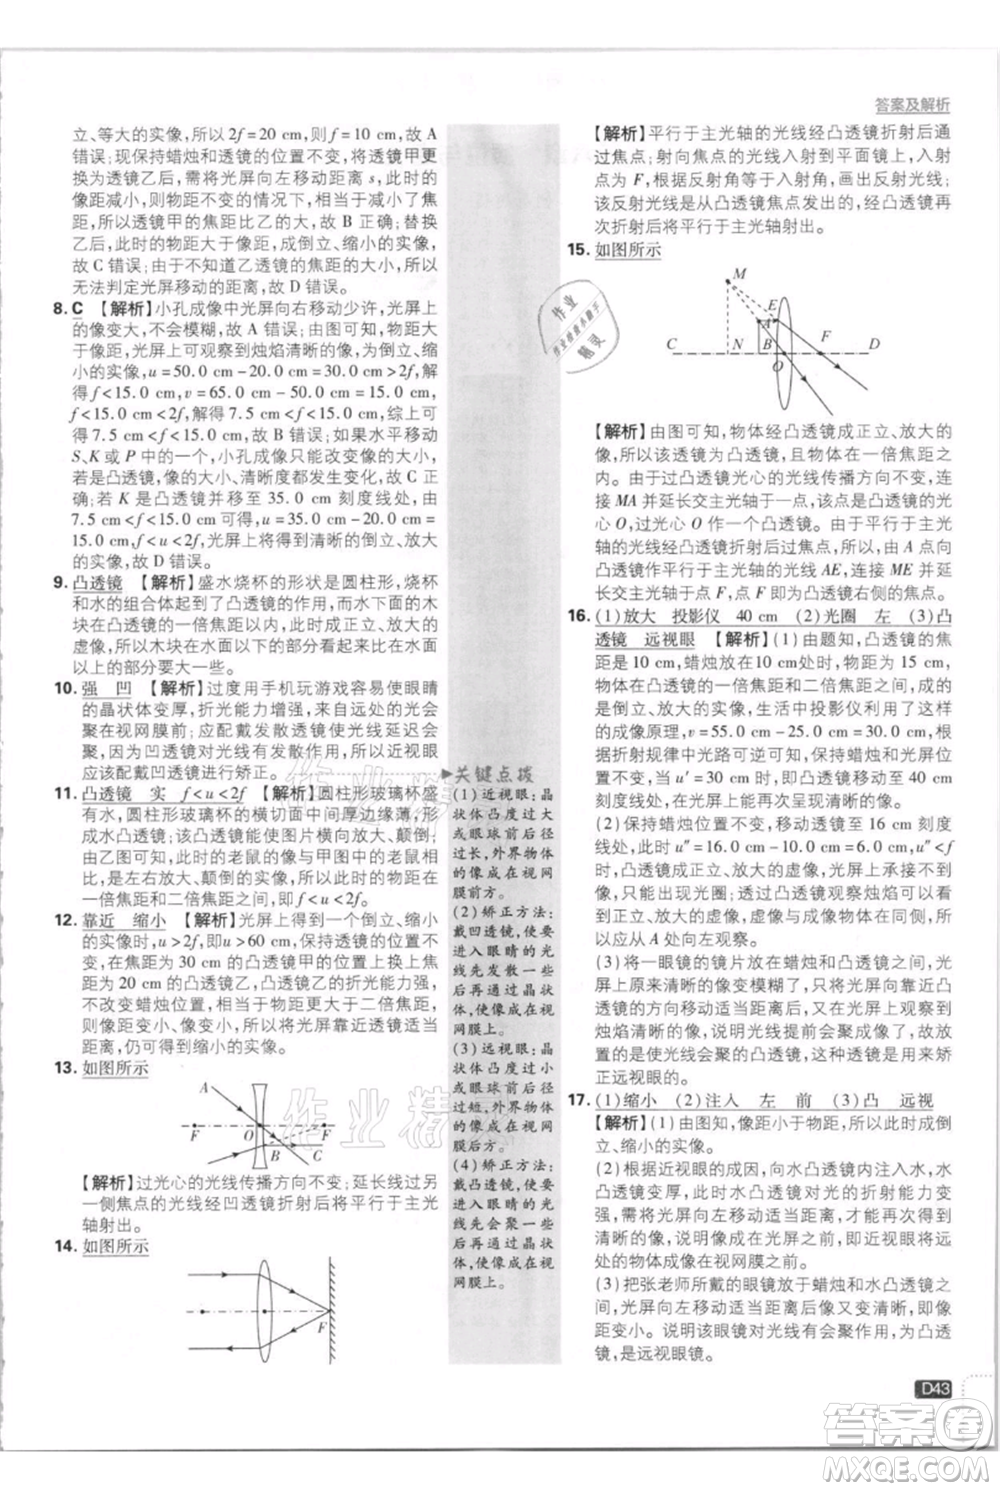 答案及解析
立、等大的实像,所以 2f=20 cm,则 f=10 cm,故 A
错误;现保持蜡烛和透镜的位置不变,将透镜甲更
换为透镜乙后,需将光屏向左移动距离 s,此时的
像距减小,则物距不变的情况下,像距变小了,
所以透镜甲的焦距比乙的大,故 B 正确;替换
乙后,此时的物距大于像距,成倒立、缩小的实像,
故 C 错误;由于不知道乙透镜的焦距的大小,
无法判定光屏移动的距离,故 D 错误。
8. C 【解析】小孔成像中光屏向右移动少许,光屏上
的像变大,不会模糊,故 A 错误;由图可知,物距大
于像距,此时光屏上可观察到烛焰清晰的倒立、缩
小的像,u=50.0 cm-20.0 cm=30.0 cm>2f,
解得 f<15.0 cm,v=65.0 cm-50.0 cm=15.0 cm,
f<15.0 cm<2f,解得 7.5 cm<f<15.0 cm,综上可
得 7.5 cm<f<15.0 cm,故 B 错误;如果水平移动
S、K 或 P 中的一个,小孔成像只能改变像的大小,
凸透镜成像,像的大小、清晰度都发生变化,故 C 正
确;若 K 是凸透镜并移至 35.0 cm 刻度线处,由
7.5 cm<f<15.0 cm 可得,u=35.0 cm-20.0 cm=
15.0 cm,f<u<2f,光屏上可能得到清晰倒立、放大
的实像,故 D 错误。
9. 凸透镜 【解析】盛水烧杯的形状是圆柱形,烧杯
和水的组合体起到了凸透镜的作用,而水下面的木
块在凸透镜的一倍焦距以内,此时成正立、放大的
虚像,所以木块在水面以下的部分看起来比水面
以上的部分要大一些。
10. 强 凹 【解析】过度用手机玩游戏容易使眼睛
的晶状体变厚,折光能力增强,来自远处点的光会
会聚在视网膜前;应配戴发散透镜使光线延迟会
聚,因为凹透镜对光线有发散作用,所以近视眼
应该配戴凹透镜进行矫正。
11. 凸透镜 实 f<u<2f 【解析】圆柱形玻璃杯盛
有水,圆柱形玻璃杯的横切面中间厚边缘薄,起
到凸透镜的作用,它能使图片横向放大、颠倒,由
图可知,此时的老鼠的像与甲图中的老鼠相比
较,是左右放大、颠倒的实像,所以此时的物距在
一倍焦距和二倍焦距之间,即 f<u<2f。
12. 靠近 缩小 【解析】光屏上得到一个倒立、缩小
的实像时,u>2f,即 u>60 cm,保持透镜的位置不
变,在焦距为 30 cm 的凸透镜甲的位置上换上焦
距为 20 cm 的凸透镜乙,凸透镜乙的折光能力强,
不改变蜡烛的位置,此时物距大于二倍焦距,
则像距变小、像变小,将光屏靠近透镜适当
距离,仍可得到缩小的实像。
13. 如图所示
A
F O B C F
【解析】过光心的光线传播方向不变;延长线过另
一侧焦点的光线经凹透镜折射后将平行于主光
轴射出。
14. 如图所示
F
关键点拨
(1) 近视眼:晶
状体凸度过大
或眼球前后径
过长,外界物体
的像成在视网
膜前方。
(2) 矫正方法:
戴凹透镜,使要
进入眼睛的光
线先发散一些
后再通过晶状
体,使像成在视
网膜上。
(3) 远视眼:晶
状体凸度太小
或眼球前后径
过短,外界物体
的像成在视网
膜后方。
(4) 矫正方法:
戴凸透镜,使要
进入眼睛的光
线先会聚一些
后再通过晶状
体,使像成在视
网膜上。
【解析】平行于主光轴的光线经凸透镜折射后通
过焦点;射向焦点的光线入射到平面镜上,入射
点为 F,根据反射角等于入射角,画出反射光线;
该反射光线是从凸透镜焦点发出的,经凸透镜再
次折射后将平行于主光轴射出。
15. 如图所示
M
E
A
C N B O F D
【解析】由图可知,物体经凸透镜成正立、放大的
像,所以该透镜是凸透镜,且物体在一倍焦距以
内。由于过凸透镜光心的光线传播方向不变,连
接 MA 并延长交主光轴于一点,该点是凸透镜的光
心 O,过光心 O 作一个凸透镜。由于平行于主光
轴的光线经凸透镜折射后过焦点,所以,由 A 点向
凸透镜作平行于主光轴的光线 AE,连接 ME 并延长
交主光轴于点 F,点 F 即为凸透镜右侧的焦点。
16. (1)放大 投影仪 40 cm (2)光圈 左 (3)凸
透镜 远视眼 【解析】(1)由题知,凸透镜的焦
距是 10 cm,蜡烛放在 10 cm处时,此时的物距在
凸透镜的一倍焦距和二倍焦距之间,成的
是倒立、放大的实像,生活中投影仪利用这样
的成像原理,v=55.0 cm-25.0 cm=30.0 cm,
由折射规律中光路可逆可知,保持蜡烛和光屏位
置不变,当 u′=30.0 cm时,将透镜移动至 40 cm
刻度处时,光屏上能再次呈现清晰的像。
(2)保持蜡烛位置不变,移动透镜至 16 cm 刻度
线处,此时 u″=16.0 cm-10.0 cm=6.0 cm,u″<f
时,凸透镜成正立、放大的虚像,光屏接收不到虚
像,只能出现光圈;用凸透镜观察烛焰的像,可以
看到正立、放大的虚像,虚像与物体在同侧,所
以应从 A 处向左观察。
(3)将一眼镜的镜片放在蜡烛和凸透镜之间,光
屏上原来清晰的像变模糊了,只将光屏向靠近凸
透镜的方向移动适当距离后,又在光屏上观察到
烛焰清晰的像,说明光线提前会聚成像了,故放
置的是使光线会聚的凸透镜,这种透镜是用来矫
正远视眼的。
17. (1)缩小 (2)注入 左 前 (3)凸 远视
【解析】(1)由图知,像距小于物距,此时成倒
立、缩小的实像。
(2)根据近视眼的成因,向水凸透镜内注入水,水
凸透镜变厚,此时水凸透镜对光的折射能力变
强,将光屏向左移动适当距离,说明近视眼看远
处的物体成像在视网膜之前。
(3)把张老师所戴的眼镜放于蜡烛和水凸透镜之
间,光屏向左移动适当距离后像又变清晰,则像
距变小。说明该眼镜对光线有会聚作用,为凸透
镜,是远视眼镜。
D43
答案圈
MXQE.COM